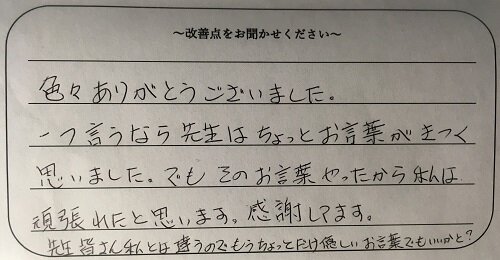 ～改善点をお聞かせください～
色々ありがとうございました。
一つ言うなら先生はちょっとお言葉がきつく
思いました。でもそのお言葉やったから私は
頑張れたと思います。感謝してます。
先生皆さん私とは違うのでもうちょっとだけ優しいお言葉でもいいかと?